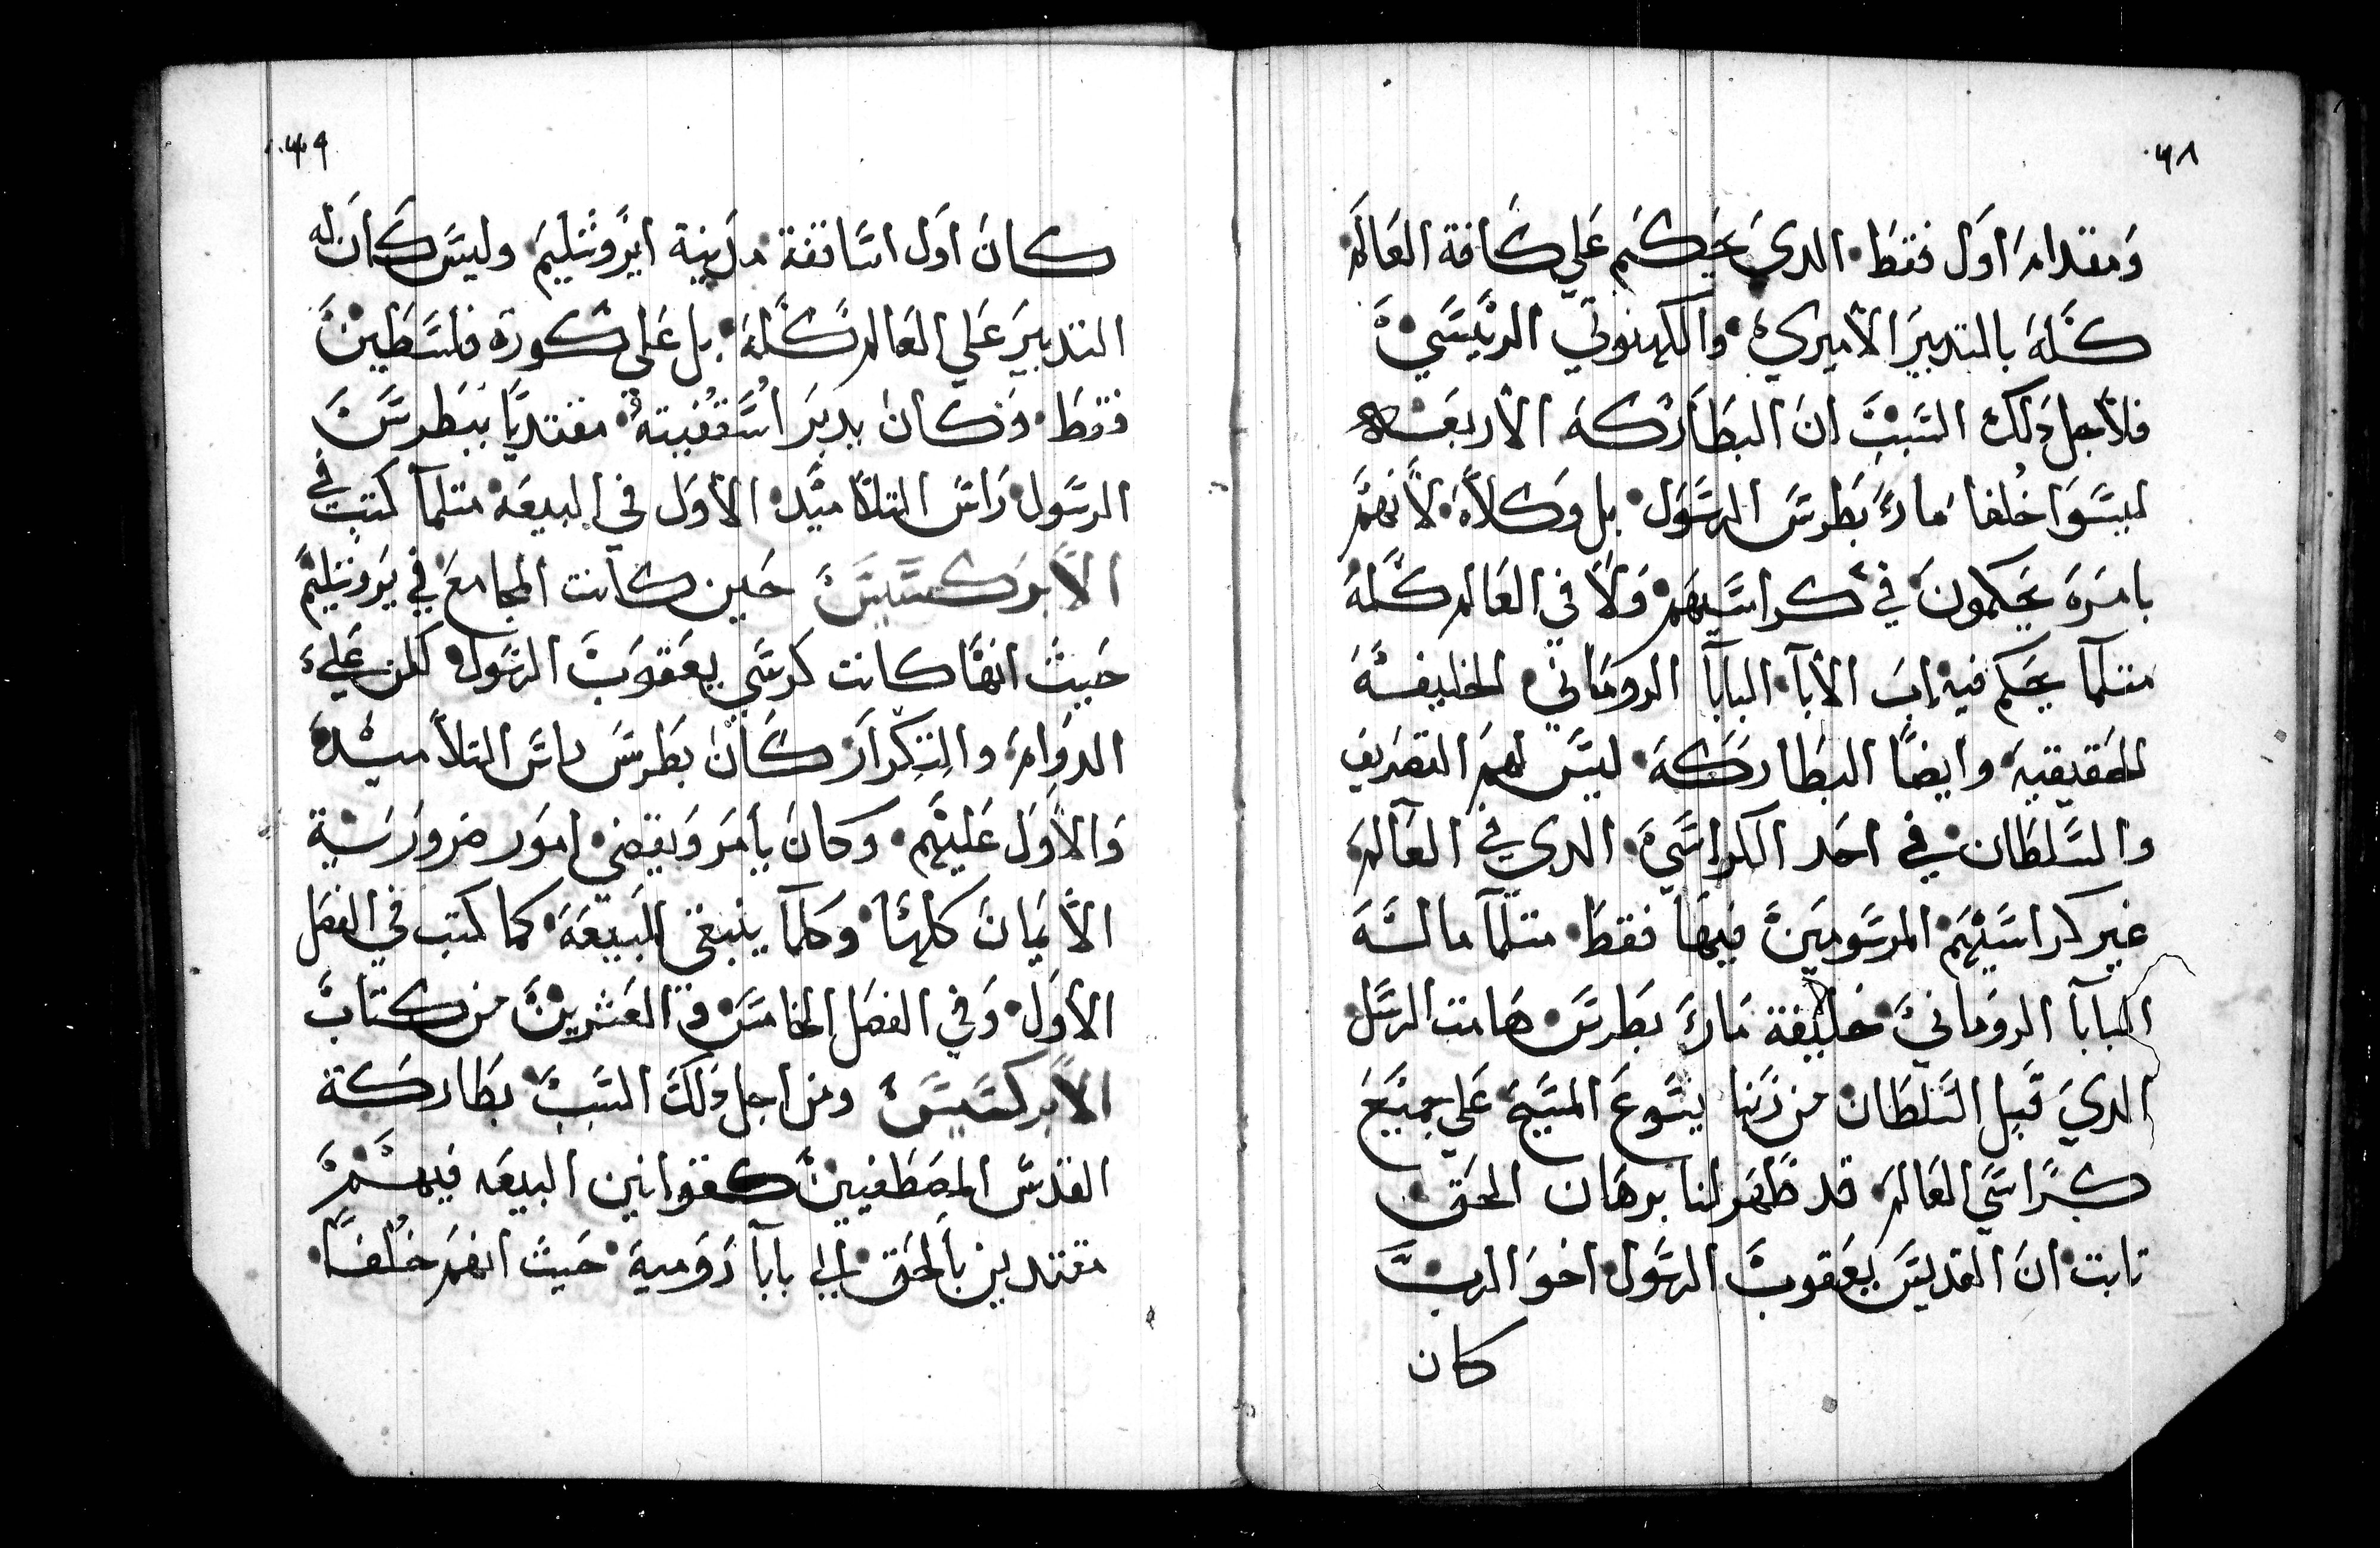 ٠٦٨
ومقدام اول فقط الدي يحكم علي كافة العالم
كله بالتدبير الأميري والكهنوتي الرييسي
فلأجل دلك السبب ان البطاركة الأربعه
ليسوا خلفا ماري بطرس الرسول بل وكلاه لأنهم
بامره يحكمون في كراسيهم ولا في العالم كله
متلما يحكم فيه اب الأبا البابا الروماني الخليفه
الحقيقيه وايضا البطاركة ليس لهم التصريف
والسلطان في احد الكراسي الدي في العالم
غير كراسيهم المرسومين فيها فقط متلما ماله
البابا الروماني خليفة ماري بطرس هامت الرسل
الدي قبل السلطان من ربنا يسوع المسيح علي جميع
كراسي العالم قد ظهر لنا برهان الحق
تابت ان القديس يعقوب الرسول اخو الرب
كان
٠٦٩
كان اول اساقفة مدينة ايروشليم وليس كان له
التدبير علي العالم كله بل علي كورة فلسطين
فقط وكان يدبر اسقفيته مقتديا ببطرس
الرسول راس التلاميد الأول في البيعه متلما كتب في
الأبركسيس حين كانت المجامع في يروشليم
حيث انها كانت كرسي يعقوب الرسول لكن علي
الدوام والتكرار كان بطرس راس التلاميده
والأول عليهم وكان يامر ويقضي امور ضرورية
الأيمان كلها وكلما ينبغي البيعه كما كتب في الفصل
الأول وفي الفصل الخامس والعشرين من كتاب
الأبركسيس ومن اجل دلك السبب بطاركة
القدس المصطفيين كقوانين البيعه فيهم
مقتدين بالحق الي بابا رومية حيث انهم خلفا